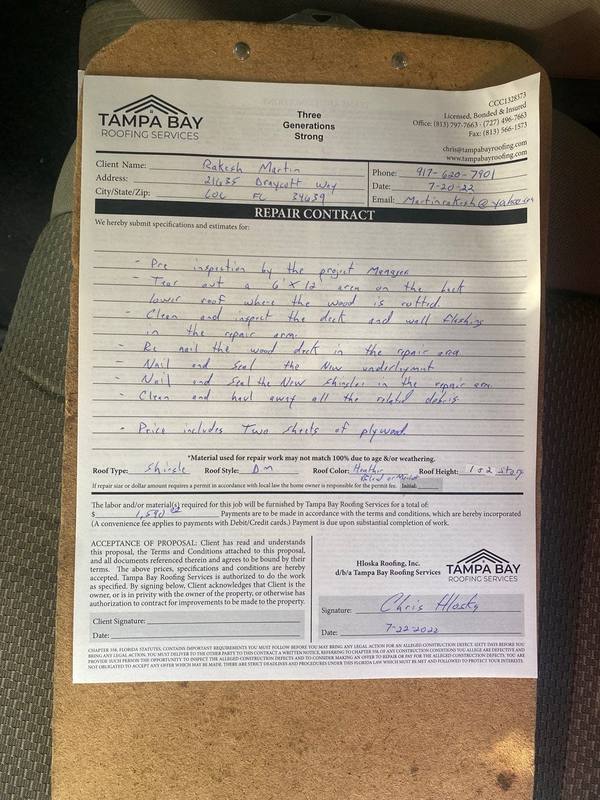 TAMPA BAY
ROOFING SERVICES
Three
Generations
Strong
CCC1328373
Licensed, Bonded & Insured
Office: (813) 797-7663 · (727) 496-7663
Fax: (813) 566-1573
chris@tampabayroofing.com
www.tampabayroofing.com
Client Name: Rakesh Martin
Address: 21635 Draycott Way
City/State/Zip: LOL FL 34639
Phone: 917-620-7901
Date: 7-20-22
Email: Martinrakesh@yahoo.com
REPAIR CONTRACT
We hereby submit specifications and estimates for:
- Pre inspection by the project Manager
- Tear out a 6'X12' area on the back
lower roof where the wood is rotted
- Clean and inspect the deck and wall flashing
in the repair area.
- Re nail the wood deck in the repair area
- Nail and seal the New underlayment
- Nail and seal the New shingles in the repair area.
- Clean and haul away all the related debris
- Price includes Two sheets of plywood.
*Material used for repair work may not match 100% due to age &/or weathering.
Roof Type: Shingle Roof Style: Dm Roof Color: Heather Roof Height: 1 & 2 story
Blend or
If repair size or dollar amount requires a permit in accordance with local law the home owner is responsible for the permit fee. Initial:
The labor and/or material(s) required for this job will be furnished by Tampa Bay Roofing Services for a total of:
$ 1,590 Payments to be made in accordance with the terms and conditions, which are hereby incorporated
(A convenience fee applies to payments with Debit/Credit cards.) Payment is due upon substantial completion of work.
ACCEPTANCE OF PROPOSAL: Client has read and understands
this proposal, the Terms and Conditions attached to this proposal,
and all documents referenced therein and agrees to be bound by their
terms. The above prices, specifications and conditions are hereby
accepted. Tampa Bay Roofing Services is authorized to do the work
as specified. By signing below, Client acknowledges that Client is the
owner, or is in privity with the owner of the property, or otherwise has
authorization to contract for improvements to be made to the property.
Client Signature:
Date:
Hloska Roofing, Inc.
d/b/a Tampa Bay Roofing Services
TAMPA BAY
ROOFING SERVICES
Signature: Chris Hloska
Date: 7-22-2022
CHAPTER 558, FLORIDA STATUTES, CONTAINS IMPORTANT REQUIREMENTS YOU MUST FOLLOW BEFORE YOU MAY BRING ANY LEGAL ACTION FOR AN ALLEGED CONSTRUCTION DEFECT. SIXTY DAYS BEFORE YOU
BRING ANY LEGAL ACTION, YOU MUST DELIVER TO THE OTHER PARTY TO THIS CONTRACT A WRITTEN NOTICE, REFERRING TO CHAPTER 558, OF ANY CONSTRUCTION CONDITIONS YOU ALLEGE ARE DEFECTIVE AND
PROVIDE SUCH PERSON THE OPPORTUNITY TO INSPECT THE ALLEGED CONSTRUCTION DEFECTS AND TO CONSIDER MAKING AN OFFER TO REPAIR OR PAY FOR THE ALLEGED CONSTRUCTION DEFECTS. YOU ARE
NOT OBLIGATED TO ACCEPT ANY OFFER WHICH MAY BE MADE. THERE ARE STRICT DEADLINES AND PROCEDURES UNDER THIS FLORIDA LAW WHICH MUST BE MET AND FOLLOWED TO PROTECT YOUR INTERESTS.